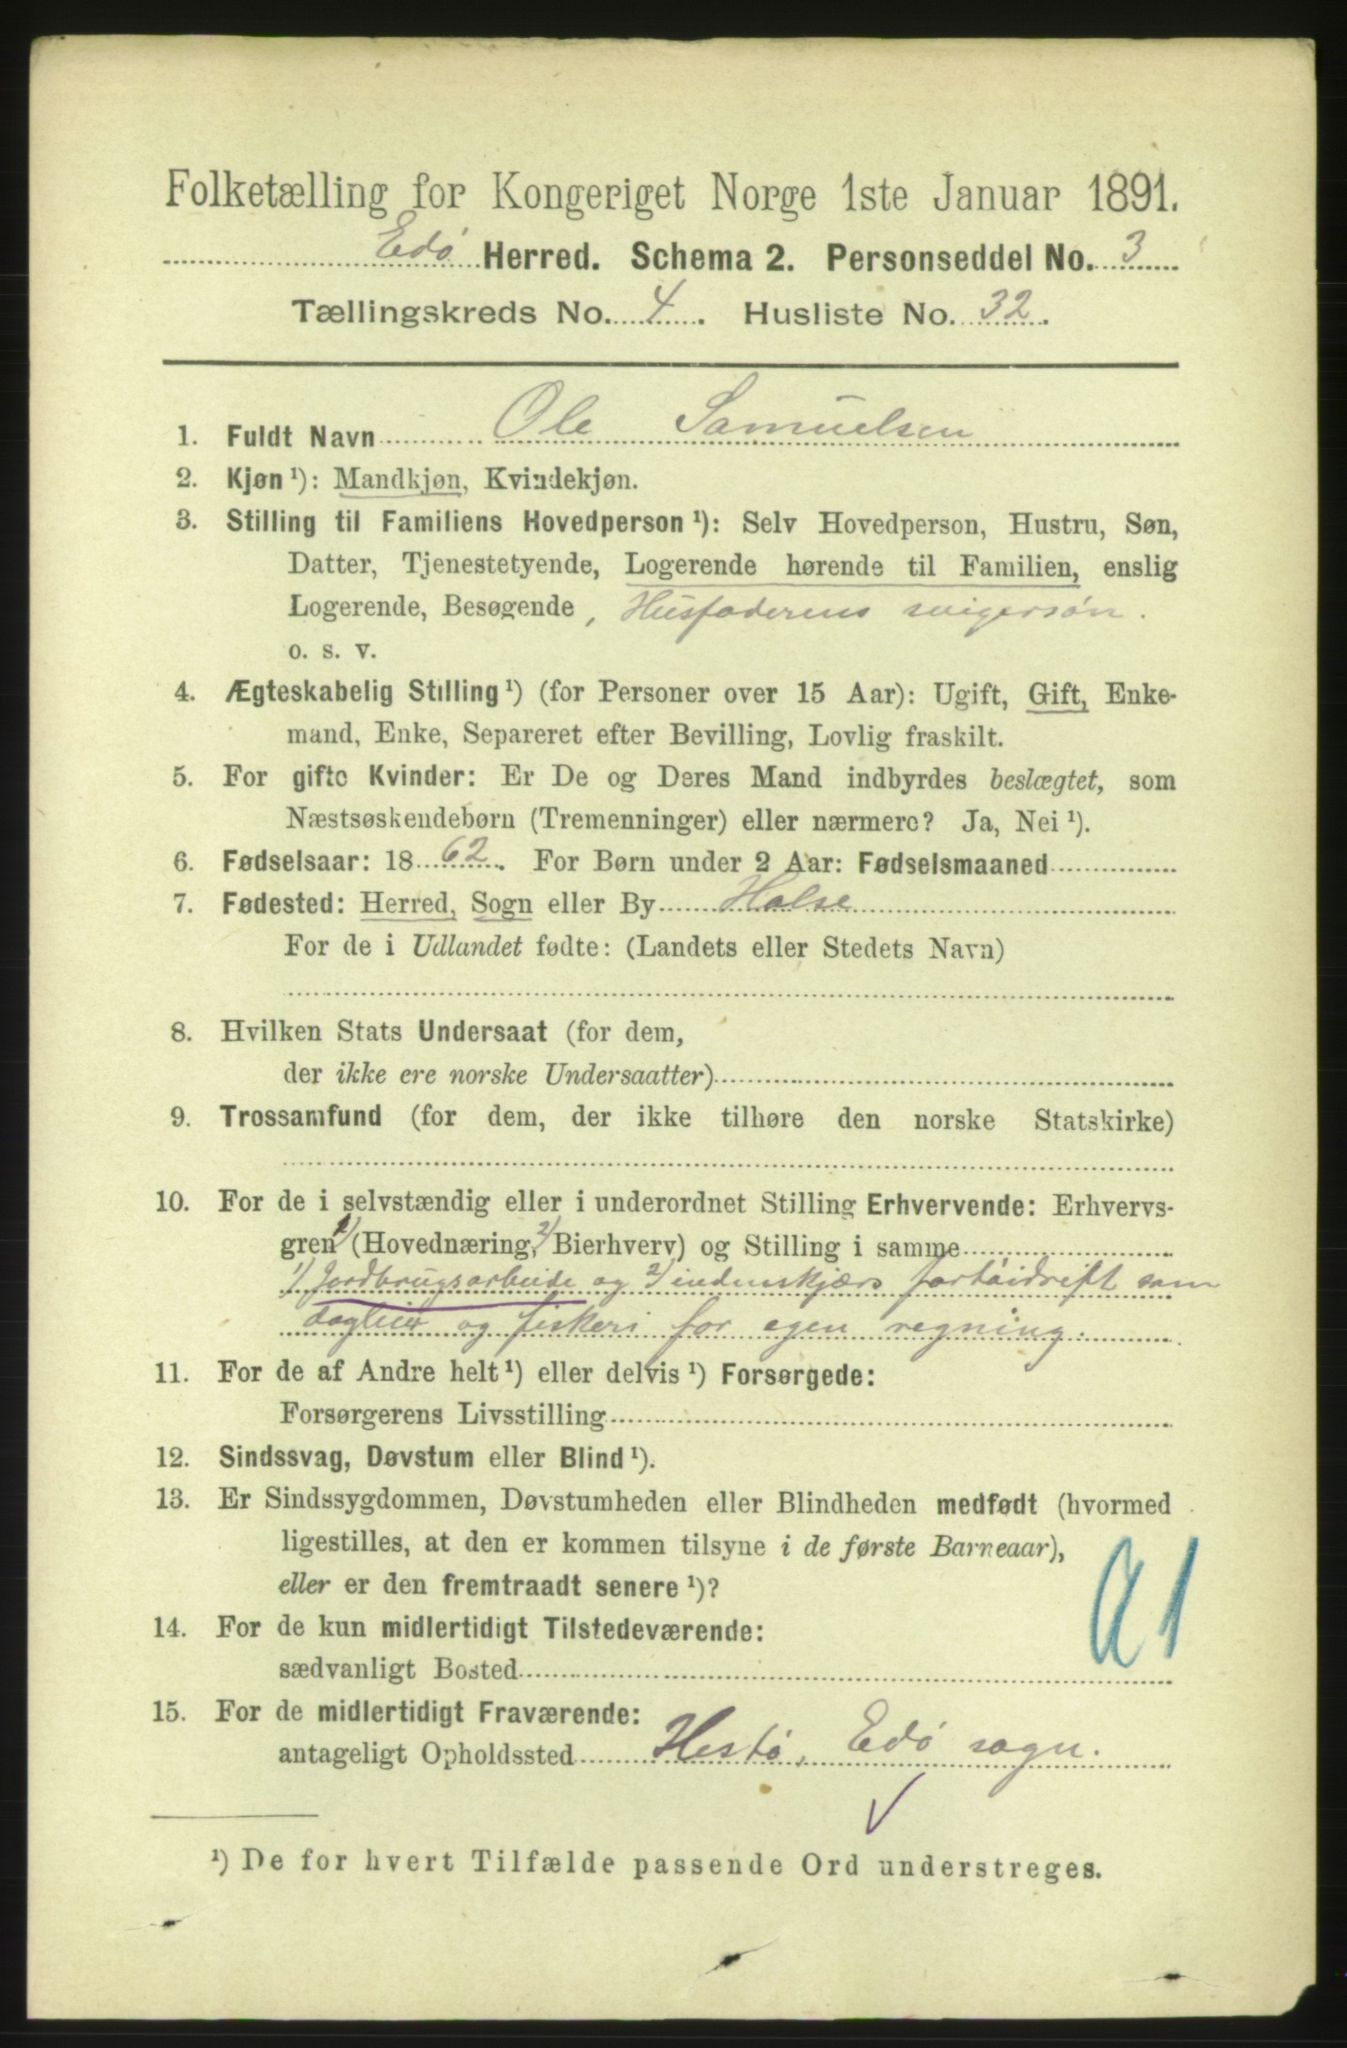 Folketælling for Kongeriget Norge 1ste Januar 1891.
Edö Herred. Schema 2. Personseddel No. 3
Tællingskreds No. 4. Husliste No. 32.
1. Fuldt Navn Ole Samuelsen
2. Kjøn ¹): Mandkjøn, Kvindekjøn.
3. Stilling til Familiens Hovedperson ¹): Selv Hovedperson, Hustru, Søn,
Datter, Tjenestetyende, Logerende hørende til Familien, enslig
Logerende, Besøgende, Husfaderens svigersön.
o. s. v.
4. Ægteskabelig Stilling ¹) (for Personer over 15 Aar): Ugift, Gift, Enke-
mand, Enke, Separeret efter Bevilling, Lovlig fraskilt.
5. For gifte Kvinder: Er De og Deres Mand indbyrdes beslægtet, som
Næstsøskendebørn (Tremenninger) eller nærmere? Ja, Nei ¹).
6. Fødselsaar: 18 62. For Børn under 2 Aar: Fødselsmaaned
7. Fødested: Herred, Sogn eller By Halse
For de i Udlandet fødte: (Landets eller Stedets Navn)
8. Hvilken Stats Undersaat (for dem,
der ikke ere norske Undersaatter)
9. Trossamfund (for dem, der ikke tilhøre den norske Statskirke)
10. For de i selvstændig eller i underordnet Stilling Erhvervende: Erhvervs-
gren 1) (Hovednæring, 2) Bierhverv) og Stilling i samme
1) Jordbrugsarbeide og 2) indenskjærs fartöidrift som
daglei og fiskeri for egen regning.
11. For de af Andre helt ¹) eller delvis ¹) Forsørgede:
Forsørgerens Livsstilling
12. Sindssvag, Døvstum eller Blind ¹).
13. Er Sindssygdommen, Døvstumheden eller Blindheden medfødt (hvormed
ligestilles, at den er kommen tilsyne i de første Barneaar),
eller er den fremtraadt senere ¹)?
14. For de kun midlertidigt Tilstedeværende:
sædvanligt Bosted
15. For de midlertidigt Fraværende:
antageligt Opholdssted Hestö, Edö sogn.
¹) De for hvert Tilfælde passende Ord understreges.